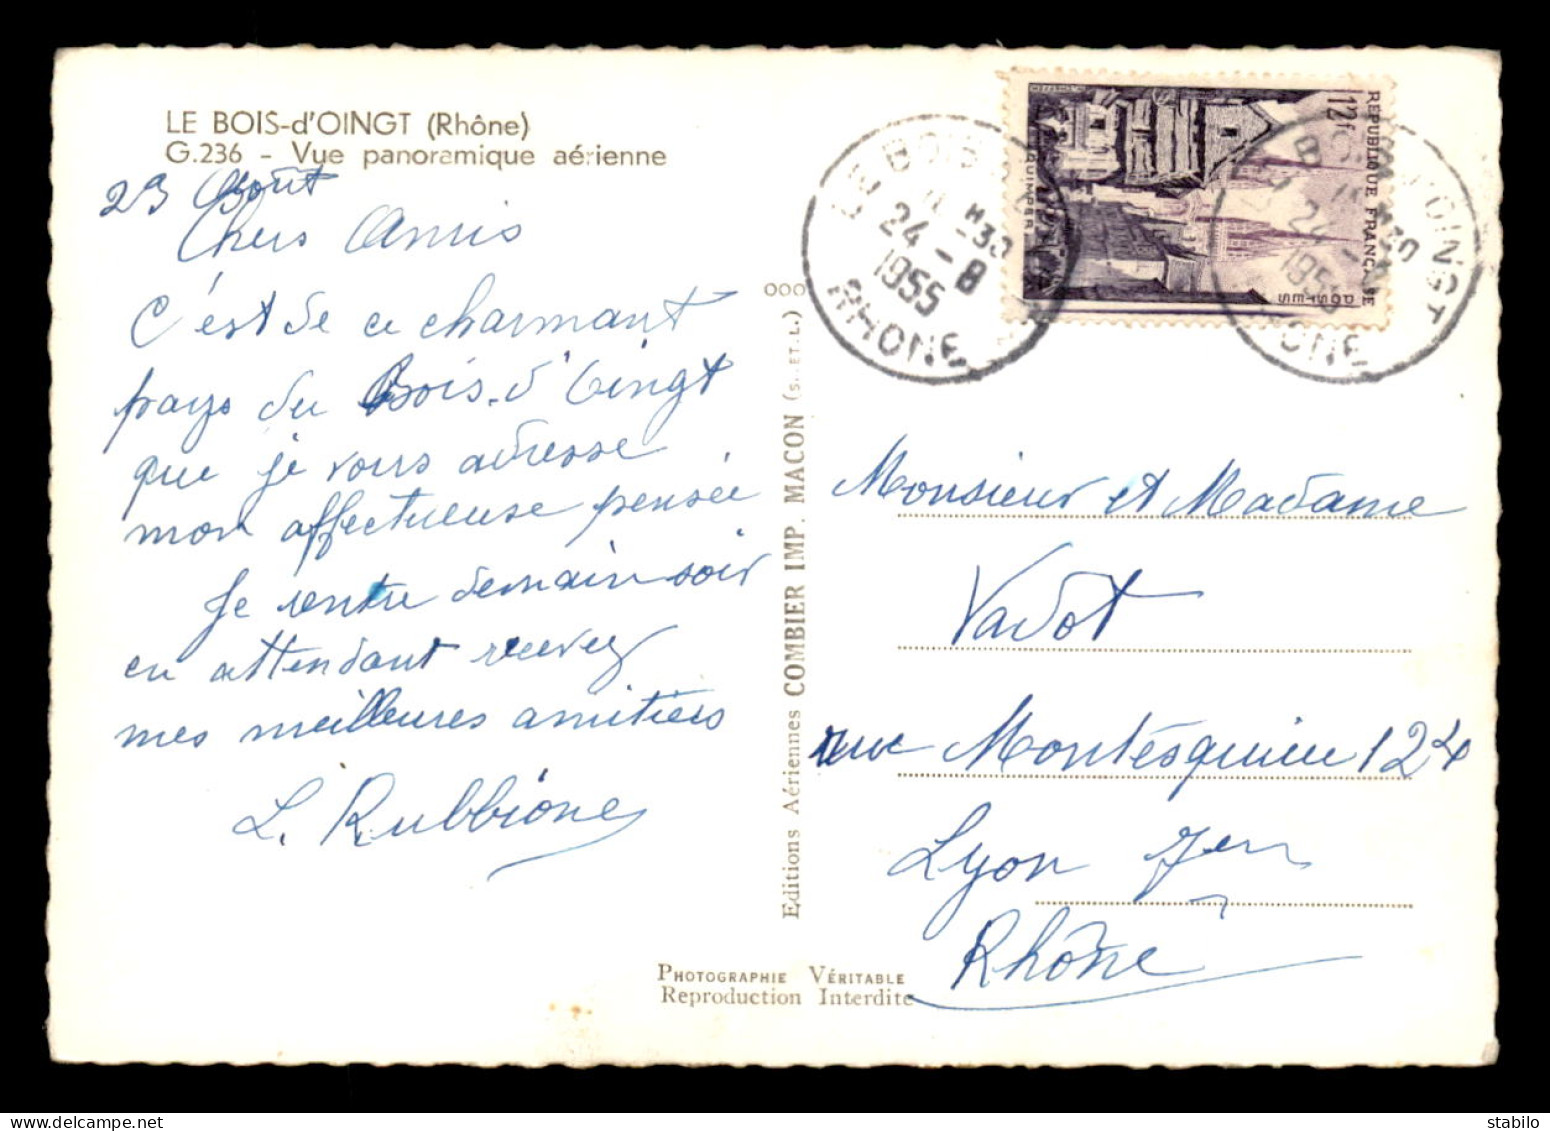 LE BOIS-d'OINGT (Rhône)
G.236 - Vue panoramique aérienne
23 Août
Chers Amis
C'est de ce charmant
pays du Bois-d'Oingt
que je vous adresse
mon affectueuse pensée
Je rentre demain soir
en attendant recevez
mes meilleures amitiés
L. Rubbione
Editions Aériennes COMBIER IMP. MACON (S. ET. L.)
PHOTOGRAPHIE VÉRITABLE
Reproduction Interdite
LE BOIS
24 - 8
1955
RHONE
REPUBLIQUE FRANÇAISE
12f
POSTES
QUIMPER
OINGT
24
1955
RHONE
Monsieur et Madame
Vadot
rue Montésquieu 124
Lyon 7em
Rhône
stabilo